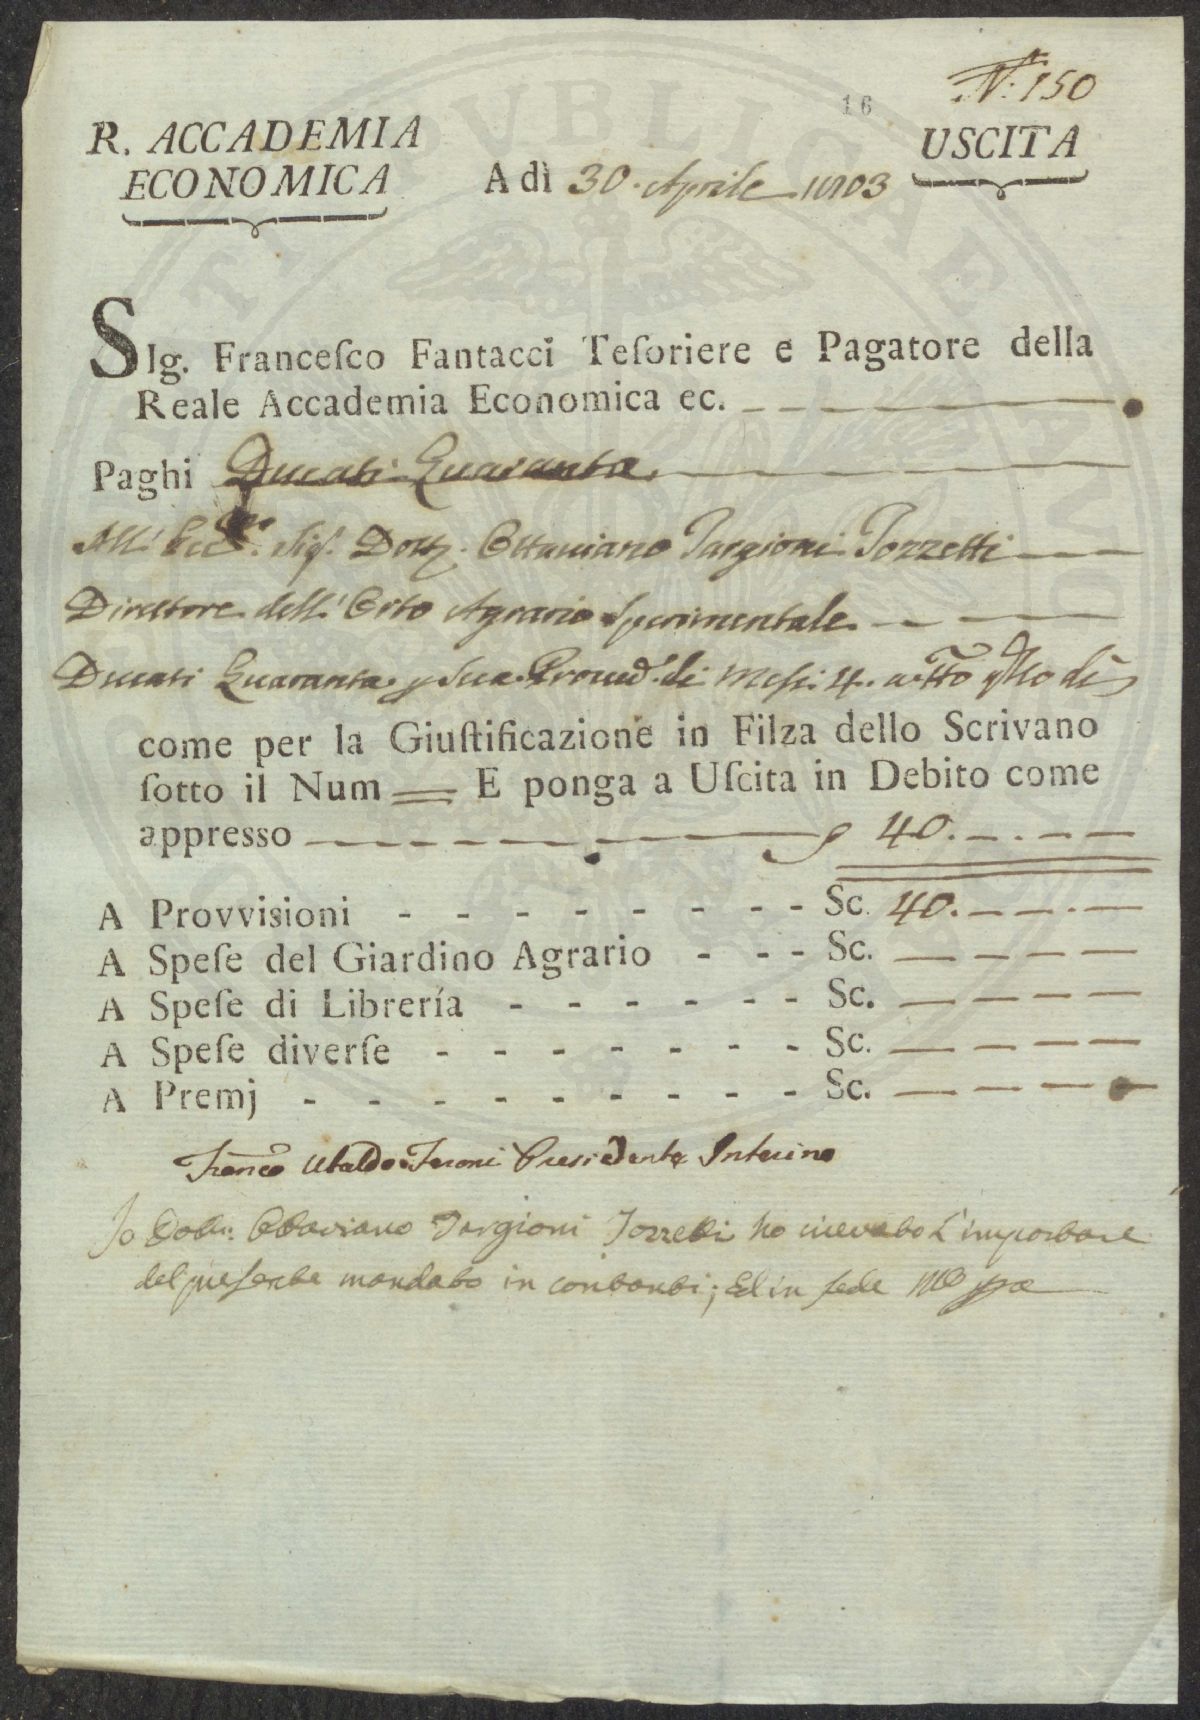 N.° 150
16
R. ACCADEMIA
ECONOMICA
USCITA
A dì 30. Aprile 1803
SIg. Franceſco Fantacci Teſoriere e Pagatore della
Reale Accademia Economica ec.
Paghi Ducati Quaranta
All' Ecc.mo Sig.r Dott.r Ottaviano Targioni Tozzetti
Direttore dell' Orto Agrario Sperimentale
Ducati Quaranta p Sua Provvd.e di Mesi 4. a tto qsto dì
come per la Giuſtificazione in Filza dello Scrivano
ſotto il Num E ponga a Uſcita in Debito come
appresso 40.
A Provvisioni - - - - - - - - - Sc. 40.
A Speſe del Giardino Agrario - - - Sc.
A Speſe di Librería - - - - - - Sc.
A Speſe diverſe - - - - - - - Sc.
A Premj - - - - - - - - - Sc.
Franco Ubaldo Feroni Presidente Interino
Io Dott.r Ottaviano Targioni Tozzetti ho ricevuto L'importare
del presente mandato in contanti; Ed in fede Mo ppa